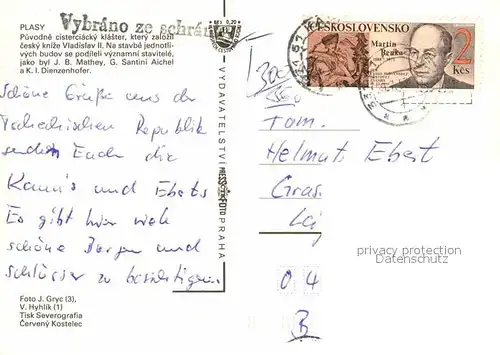 PLASY
Vybráno ze schrán
Původně cisterciácký klášter, který založil
český kníže Vladislav II. Na stavbě jednotli-
vých budov se podíleli významní stavitelé,
jako byl J. B. Mathey, G. Santini Aichel
a K. I. Dienzenhofer.
Schöne Grüße aus der
Tschechischen Republik
senden Euch die
und Eberts
Es gibt hier viele
schöne Burgen und
Schlösser zu besichtigen.
Foto J. Gryc (3),
V. Hyhlík (1)
Tisk Severografia
Červený Kostelec
VYDAVATELSTVÍ PRESSFOTO PRAHA
ČESKOSLOVENSKO
Martin
Benka
2
Kčs
Fam.
Helmut Ebert
privacy protection
DANKE. GDPR
0 4
B